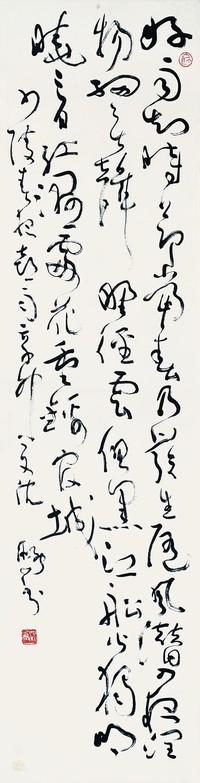 好雨知時節當春乃發生随風潜入夜潤
物細無聲野徑雲俱黑江船火獨明
曉看紅濕處花重錦官城
少陵春夜喜雨